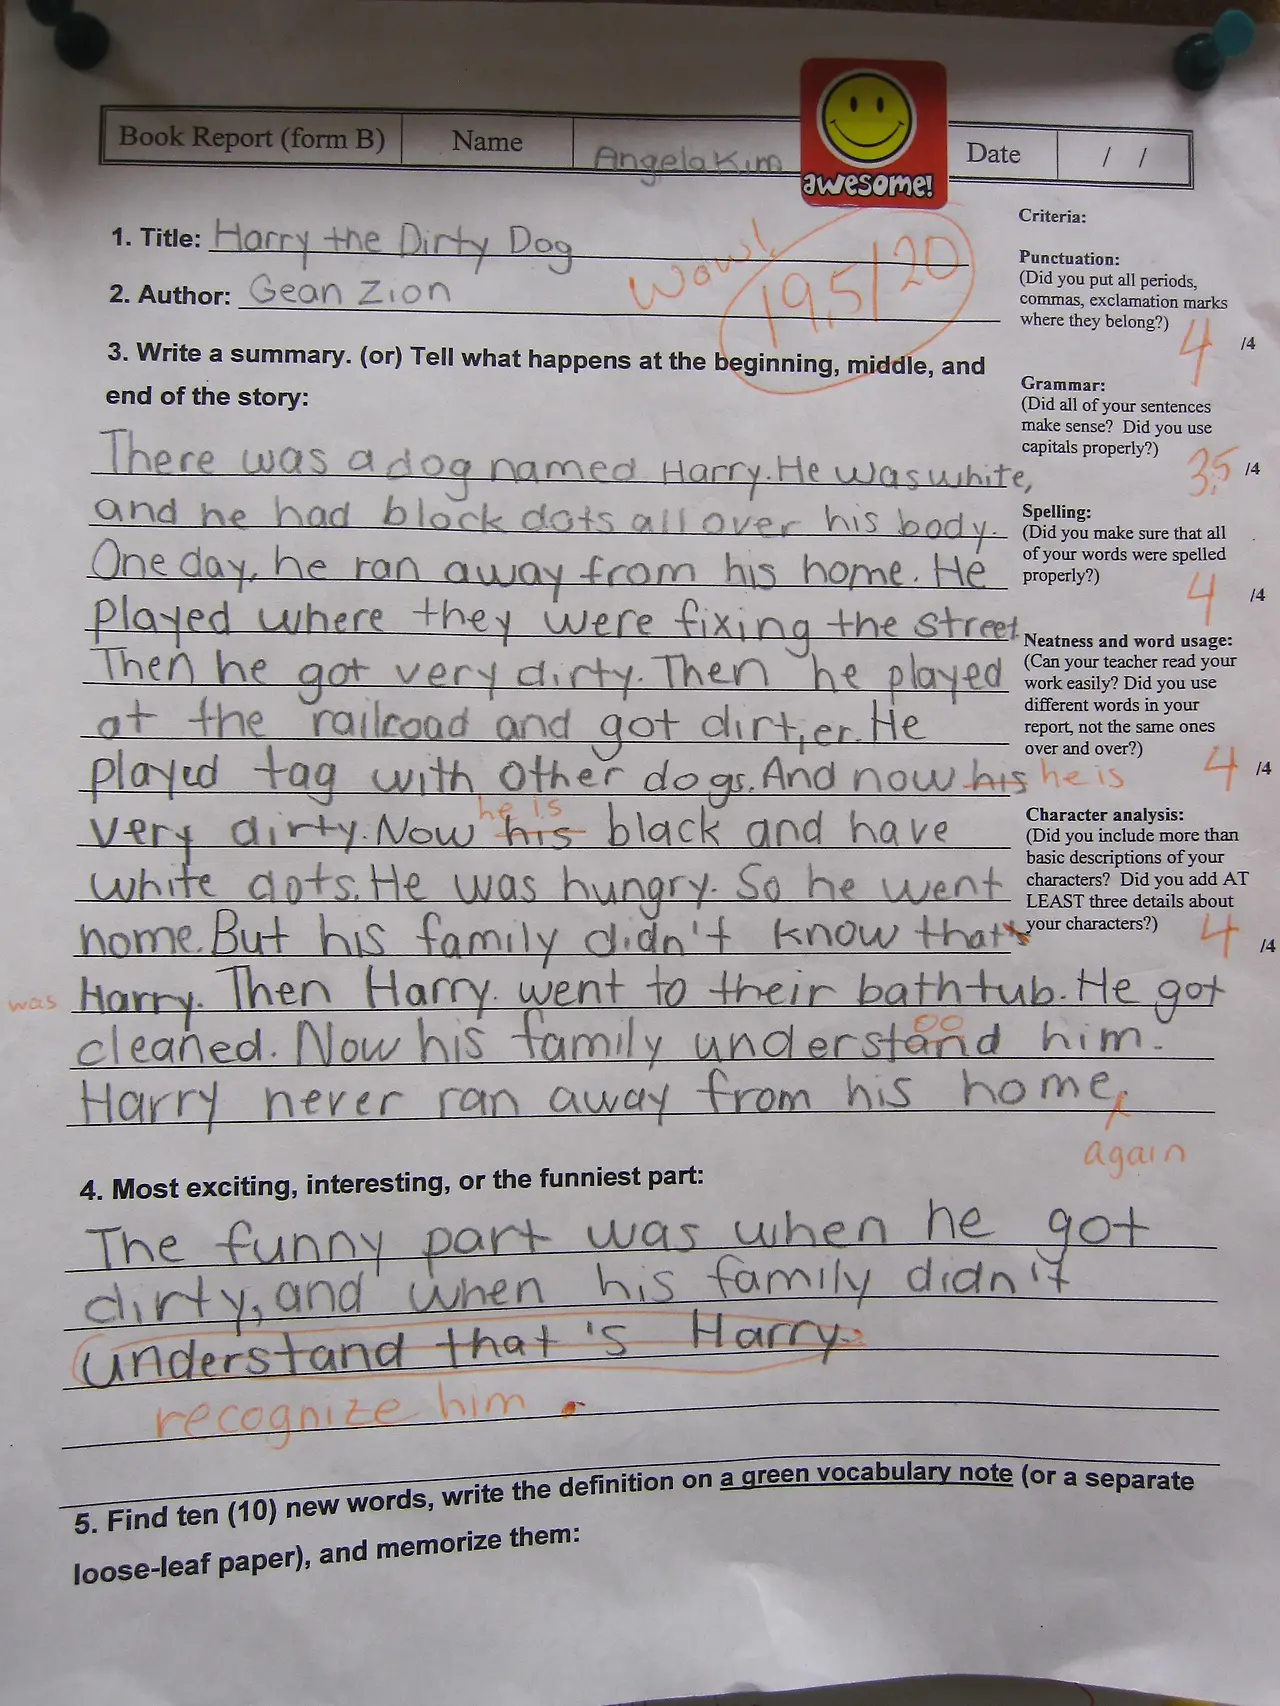 Book Report (form B) Name Angela Kim Date / /
awesome!
1. Title: Harry the Dirty Dog
2. Author: Gean Zion
Wow! 19,5/20
3. Write a summary. (or) Tell what happens at the beginning, middle, and
end of the story:
There was a dog named Harry. He was white,
and he had black dots all over his body.
One day, he ran away from his home. He
played where they were fixing the street.
Then he got very dirty. Then he played
at the railroad and got dirt,er. He
played tag with other dogs. And now his he is
he is
very dirty. Now his black and have
white dots. He was hungry. So he went
home. But his family didn't know that's
was Harry. Then Harry. went to their bathtub. He got
oo
cleaned. Now his family understand him.
Harry never ran away from his home.
again
4. Most exciting, interesting, or the funniest part:
The funny part was when he got
dirty, and when his family didn't
understand that's Harry.
recognize him .
5. Find ten (10) new words, write the definition on a green vocabulary note (or a separate
loose-leaf paper), and memorize them:
Criteria:
Punctuation:
(Did you put all periods,
commas, exclamation marks
where they belong?)
4 /4
Grammar:
(Did all of your sentences
make sense? Did you use
capitals properly?)
3,5 /4
Spelling:
(Did you make sure that all
of your words were spelled
properly?)
4 /4
Neatness and word usage:
(Can your teacher read your
work easily? Did you use
different words in your
report, not the same ones
over and over?)
4 /4
Character analysis:
(Did you include more than
basic descriptions of your
characters? Did you add AT
LEAST three details about
your characters?)
4 /4